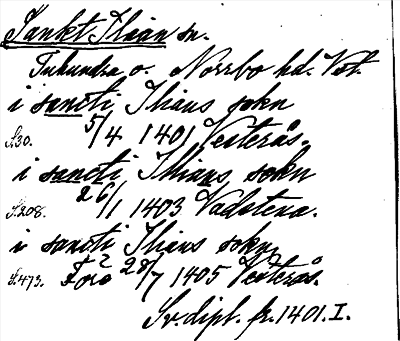 Sankt Ilian sn.
Tuhundra o. Norrbo hd. Vst.
i sancti Ilians sokn
S.30. 5/4 1401 Vesterås.
i sancti Ilians sokn
S.208. 26/1 1403 Vadstena.
i sancti Ilians sokn
S.473. Före 28/7 1405 Vesterås.
Sv. dipl. fr. 1401. I.